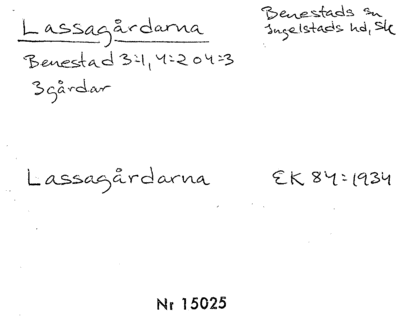 Lassagårdarna
Benestads sn
Ingelstads hd, Sk
Benestad 3:1, 4:2 o 4:3
3 gårdar
Lassagårdarna
EK 84:1934
Nr 15025